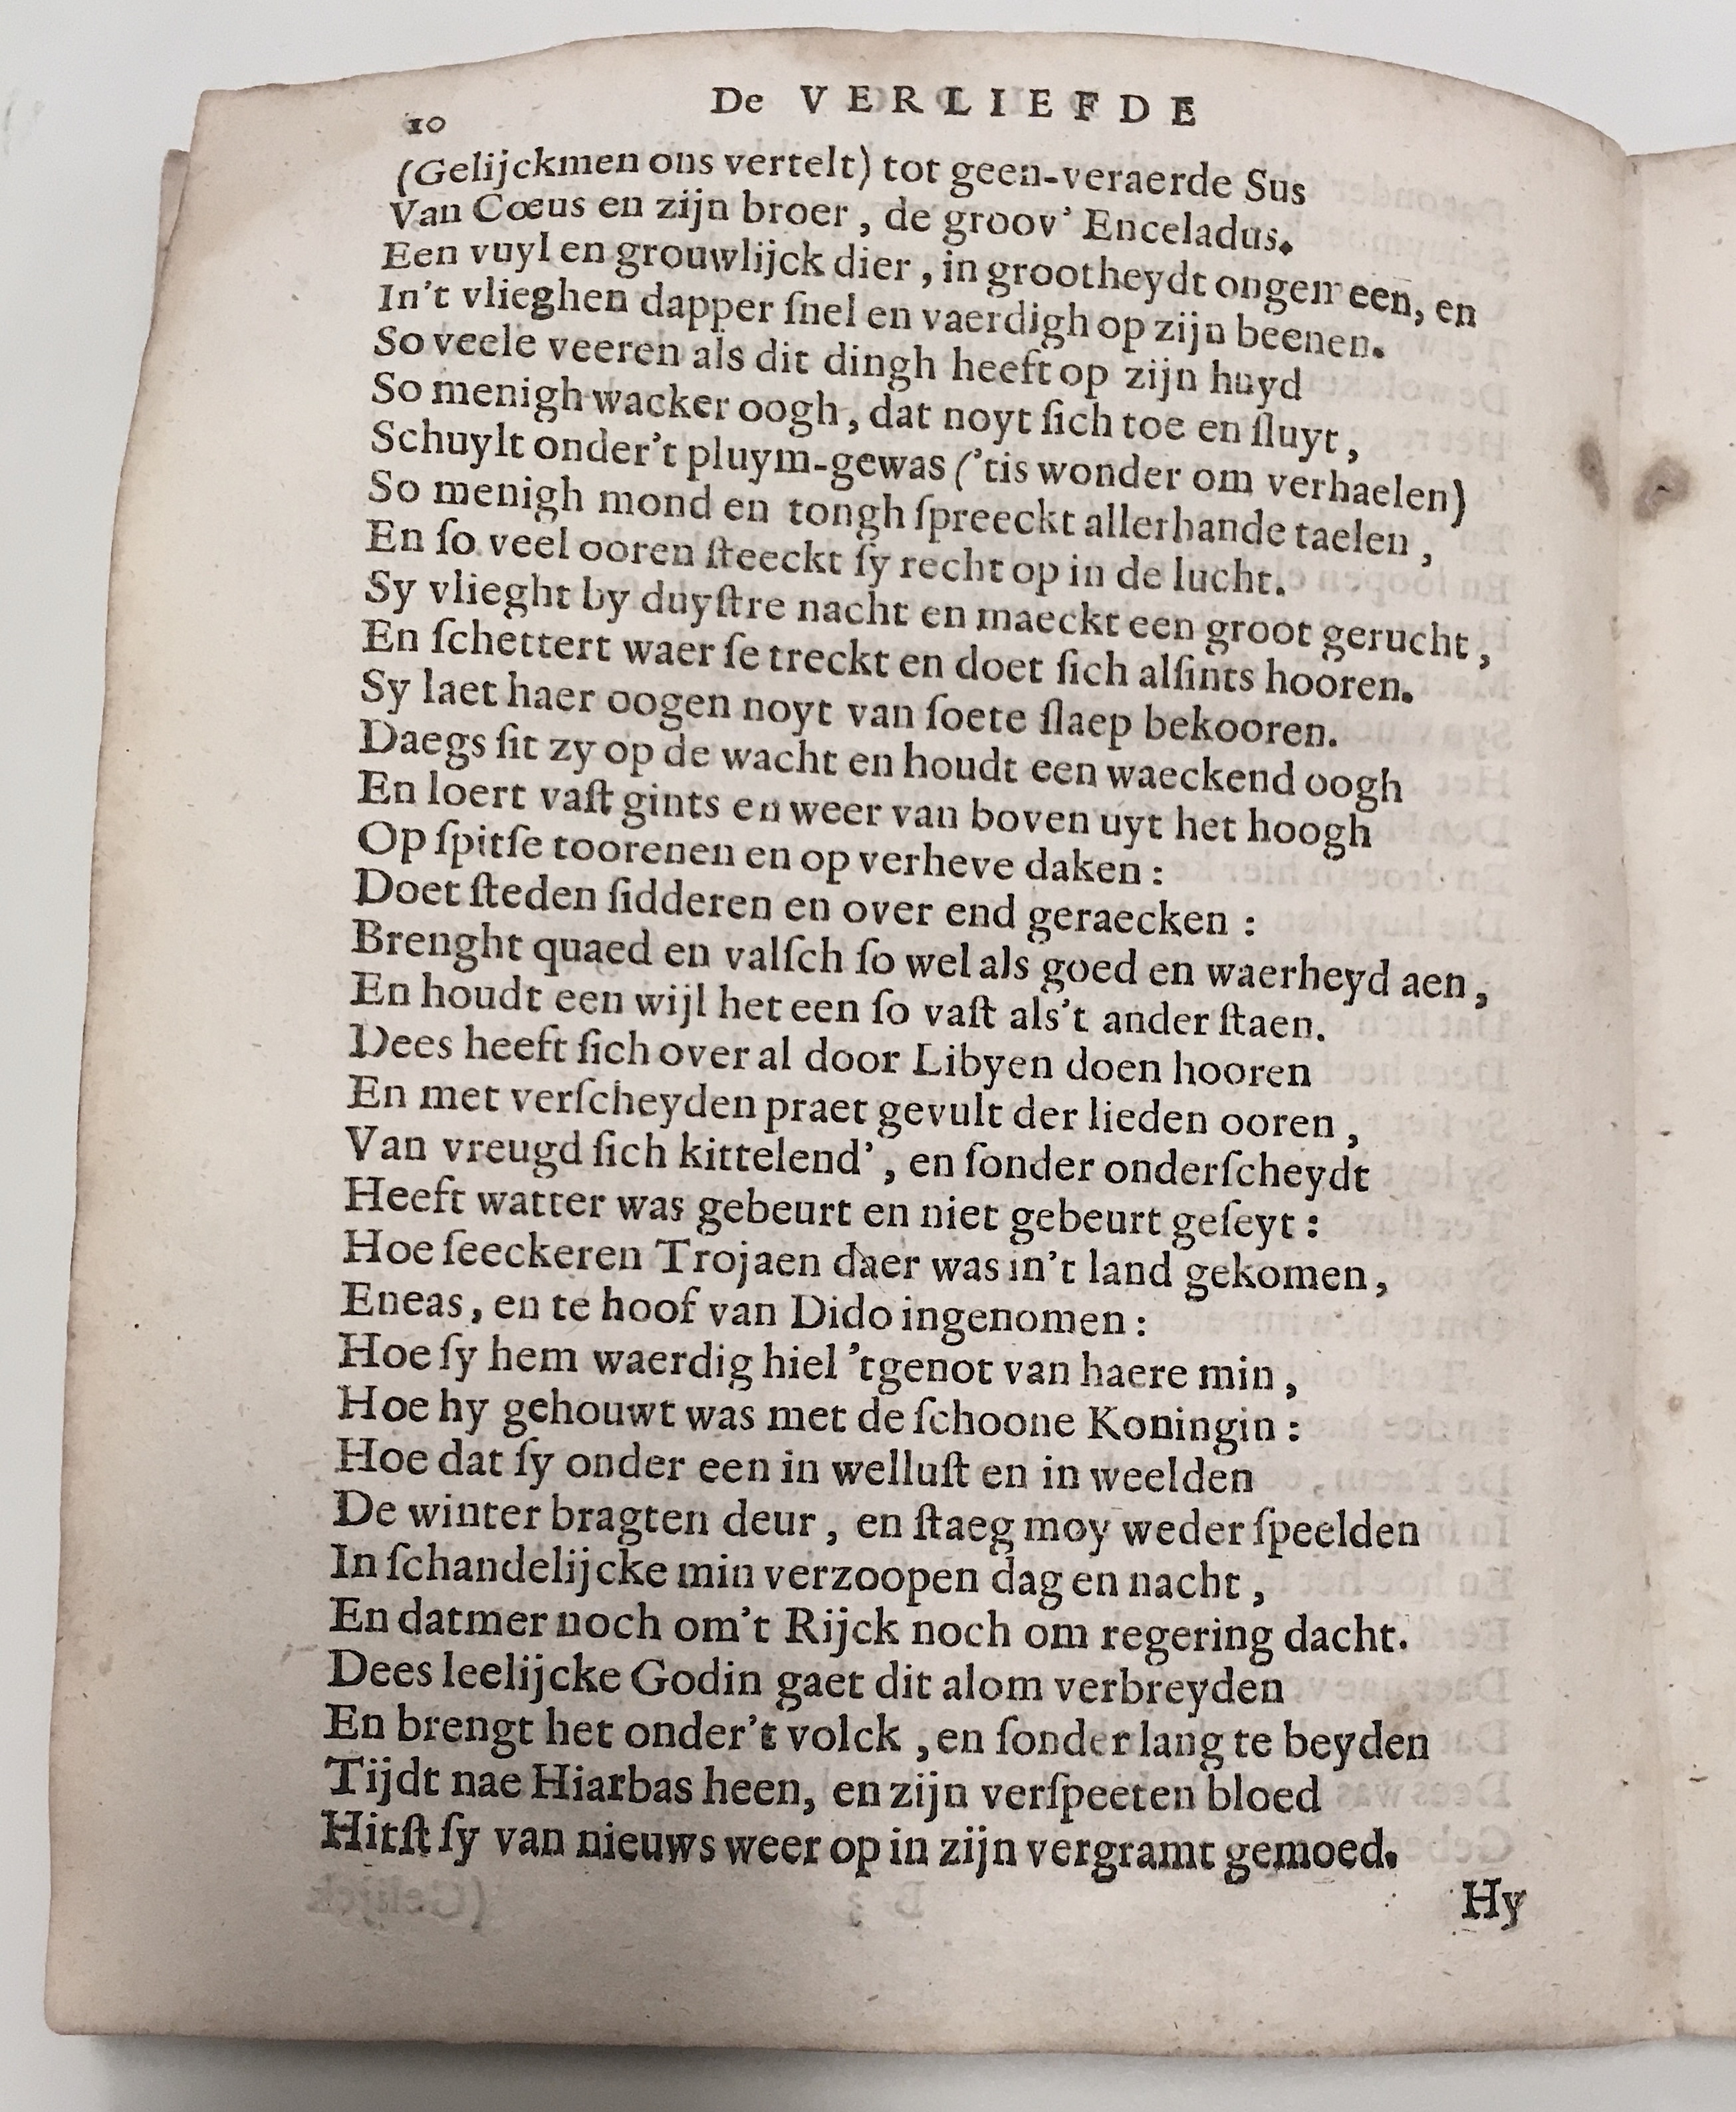 10
De VERLIEFDE
(Gelijckmen ons vertelt) tot geen-veraerde Sus
Van Cœus en zijn broer, de groov' Enceladus.
Een vuyl en grouwlijck dier, in grootheydt ongemeen, en
In't vlieghen dapper ſnel en vaerdigh op zijn beenen.
So veele veeren als dit dingh heeft op zijn huyd
So menigh wacker oogh, dat noyt ſich toe en ſluyt,
Schuylt onder't pluym-gewas ('tis wonder om verhaelen)
So menigh mond en tongh ſpreeckt allerhande taelen,
En ſo veel ooren ſteeckt ſy recht op in de lucht.
Sy vlieght by duyſtre nacht en maeckt een groot gerucht,
En ſchettert waer ſe treckt en doet ſich alſints hooren.
Sy laet haer oogen noyt van ſoete ſlaep bekooren.
Daegs ſit zy op de wacht en houdt een waeckend oogh
En loert vaſt gints en weer van boven uyt het hoogh
Op ſpitſe toorenen en op verheve daken:
Doet ſteden ſidderen en over end geraecken:
Brenght quaed en valſch ſo wel als goed en waerheyd aen,
En houdt een wijl het een ſo vaſt als't ander ſtaen.
Dees heeft ſich over al door Libyen doen hooren
En met verſcheyden praet gevult der lieden ooren,
Van vreugd ſich kittelend', en ſonder onderſcheydt
Heeft watter was gebeurt en niet gebeurt geſeyt:
Hoe ſeeckeren Trojaen daer was in't land gekomen,
Eneas, en te hoof van Dido ingenomen:
Hoe ſy hem waerdig hiel 'tgenot van haere min,
Hoe hy gehouwt was met de ſchoone Koningin:
Hoe dat ſy onder een in welluſt en in weelden
De winter bragten deur, en ſtaeg moy weder ſpeelden
In ſchandelijcke min verzoopen dag en nacht,
En datmer noch om't Rijck noch om regering dacht.
Dees leelijcke Godin gaet dit alom verbreyden
En brengt het onder't volck, en ſonder lang te beyden
Tijdt nae Hiarbas heen, en zijn verſpeeten bloed
Hitſt ſy van nieuws weer op in zijn vergramt gemoed.
Hy